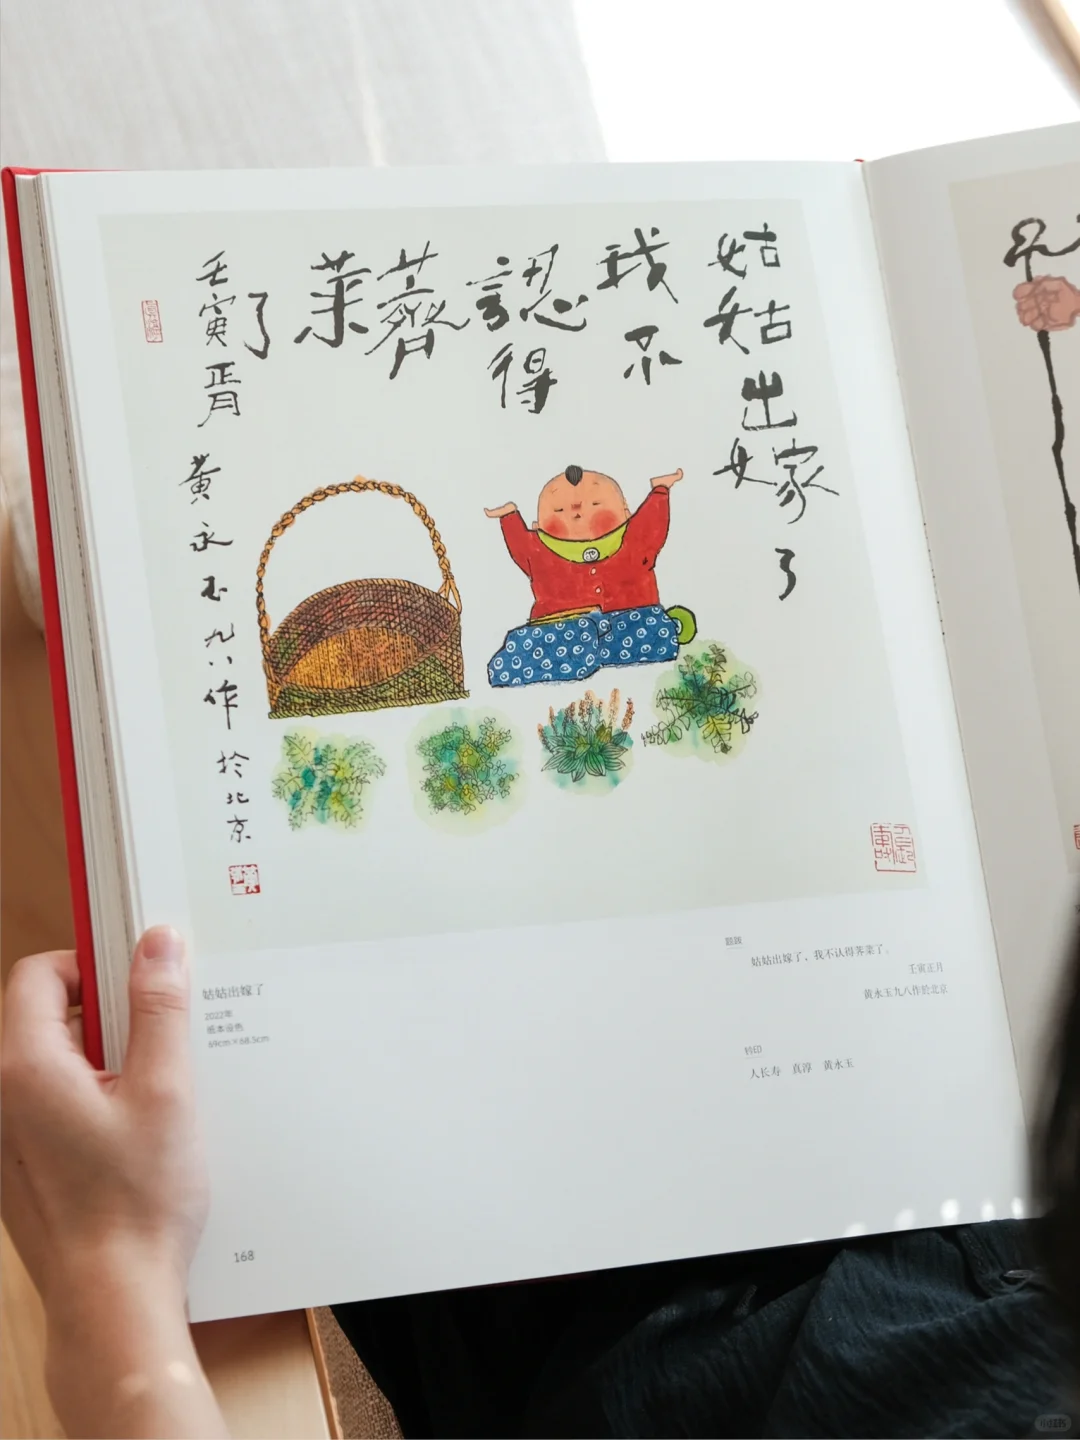 姑姑出嫁了
我不
認得
薺菜
了
壬寅正月
黄永玉九八作於北京
姑姑出嫁了
2022年
纸本设色
69cm×68.5cm
题跋
姑姑出嫁了，我不认得荠菜了。
壬寅正月
黄永玉九八作於北京
钤印
人长寿 真淳 黄永玉
168
小红书